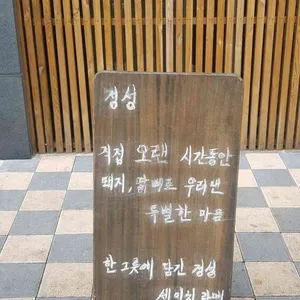 정성
직접 오랜 시간동안
돼지, 닭뼈로 우려낸
특별한 마음
한 그릇에 담긴 정성